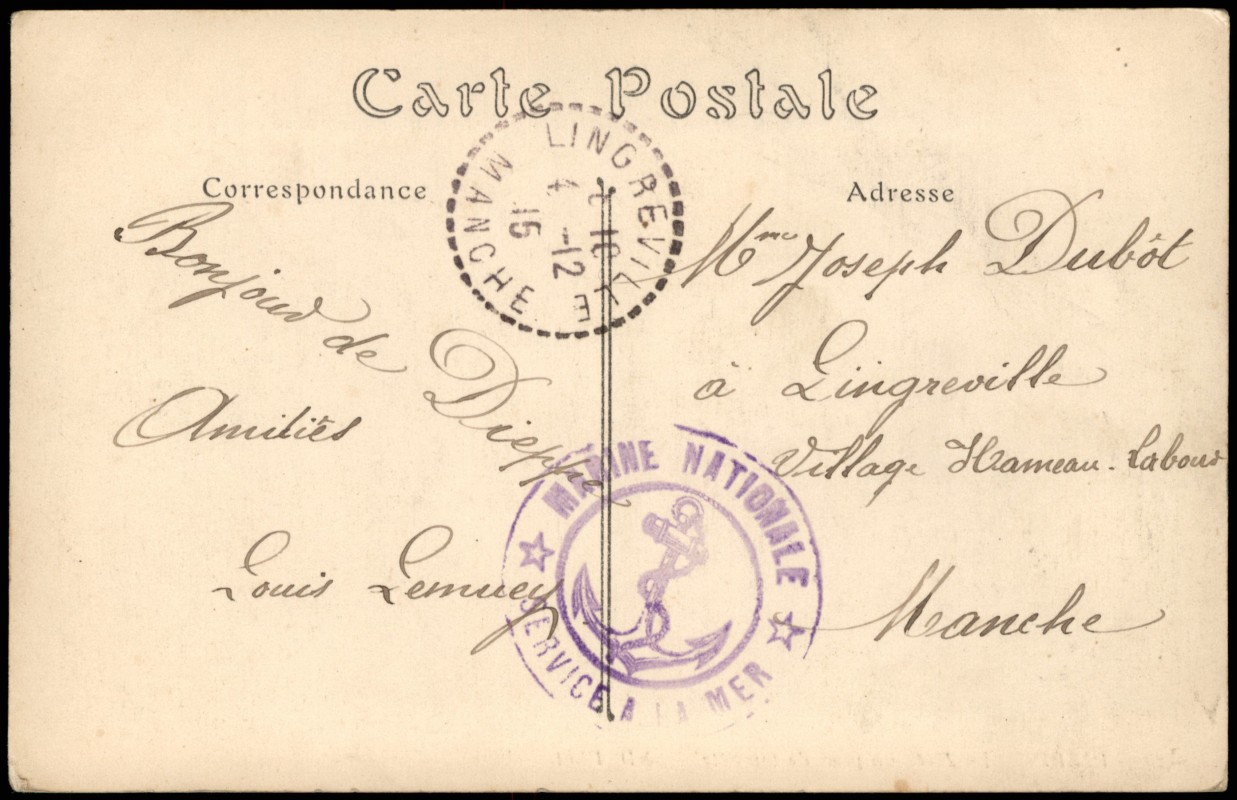 Carte Postale
Correspondance
Adresse
LINGREVILLE
MANCHE
4 -12
15
Bonjour de Dieppe
Amitiés
Louis Lemuey
Mme Joseph Dubôt
à Lingreville
Village Hameau-Labour
Manche
MARINE NATIONALE
SERVICE A LA MER